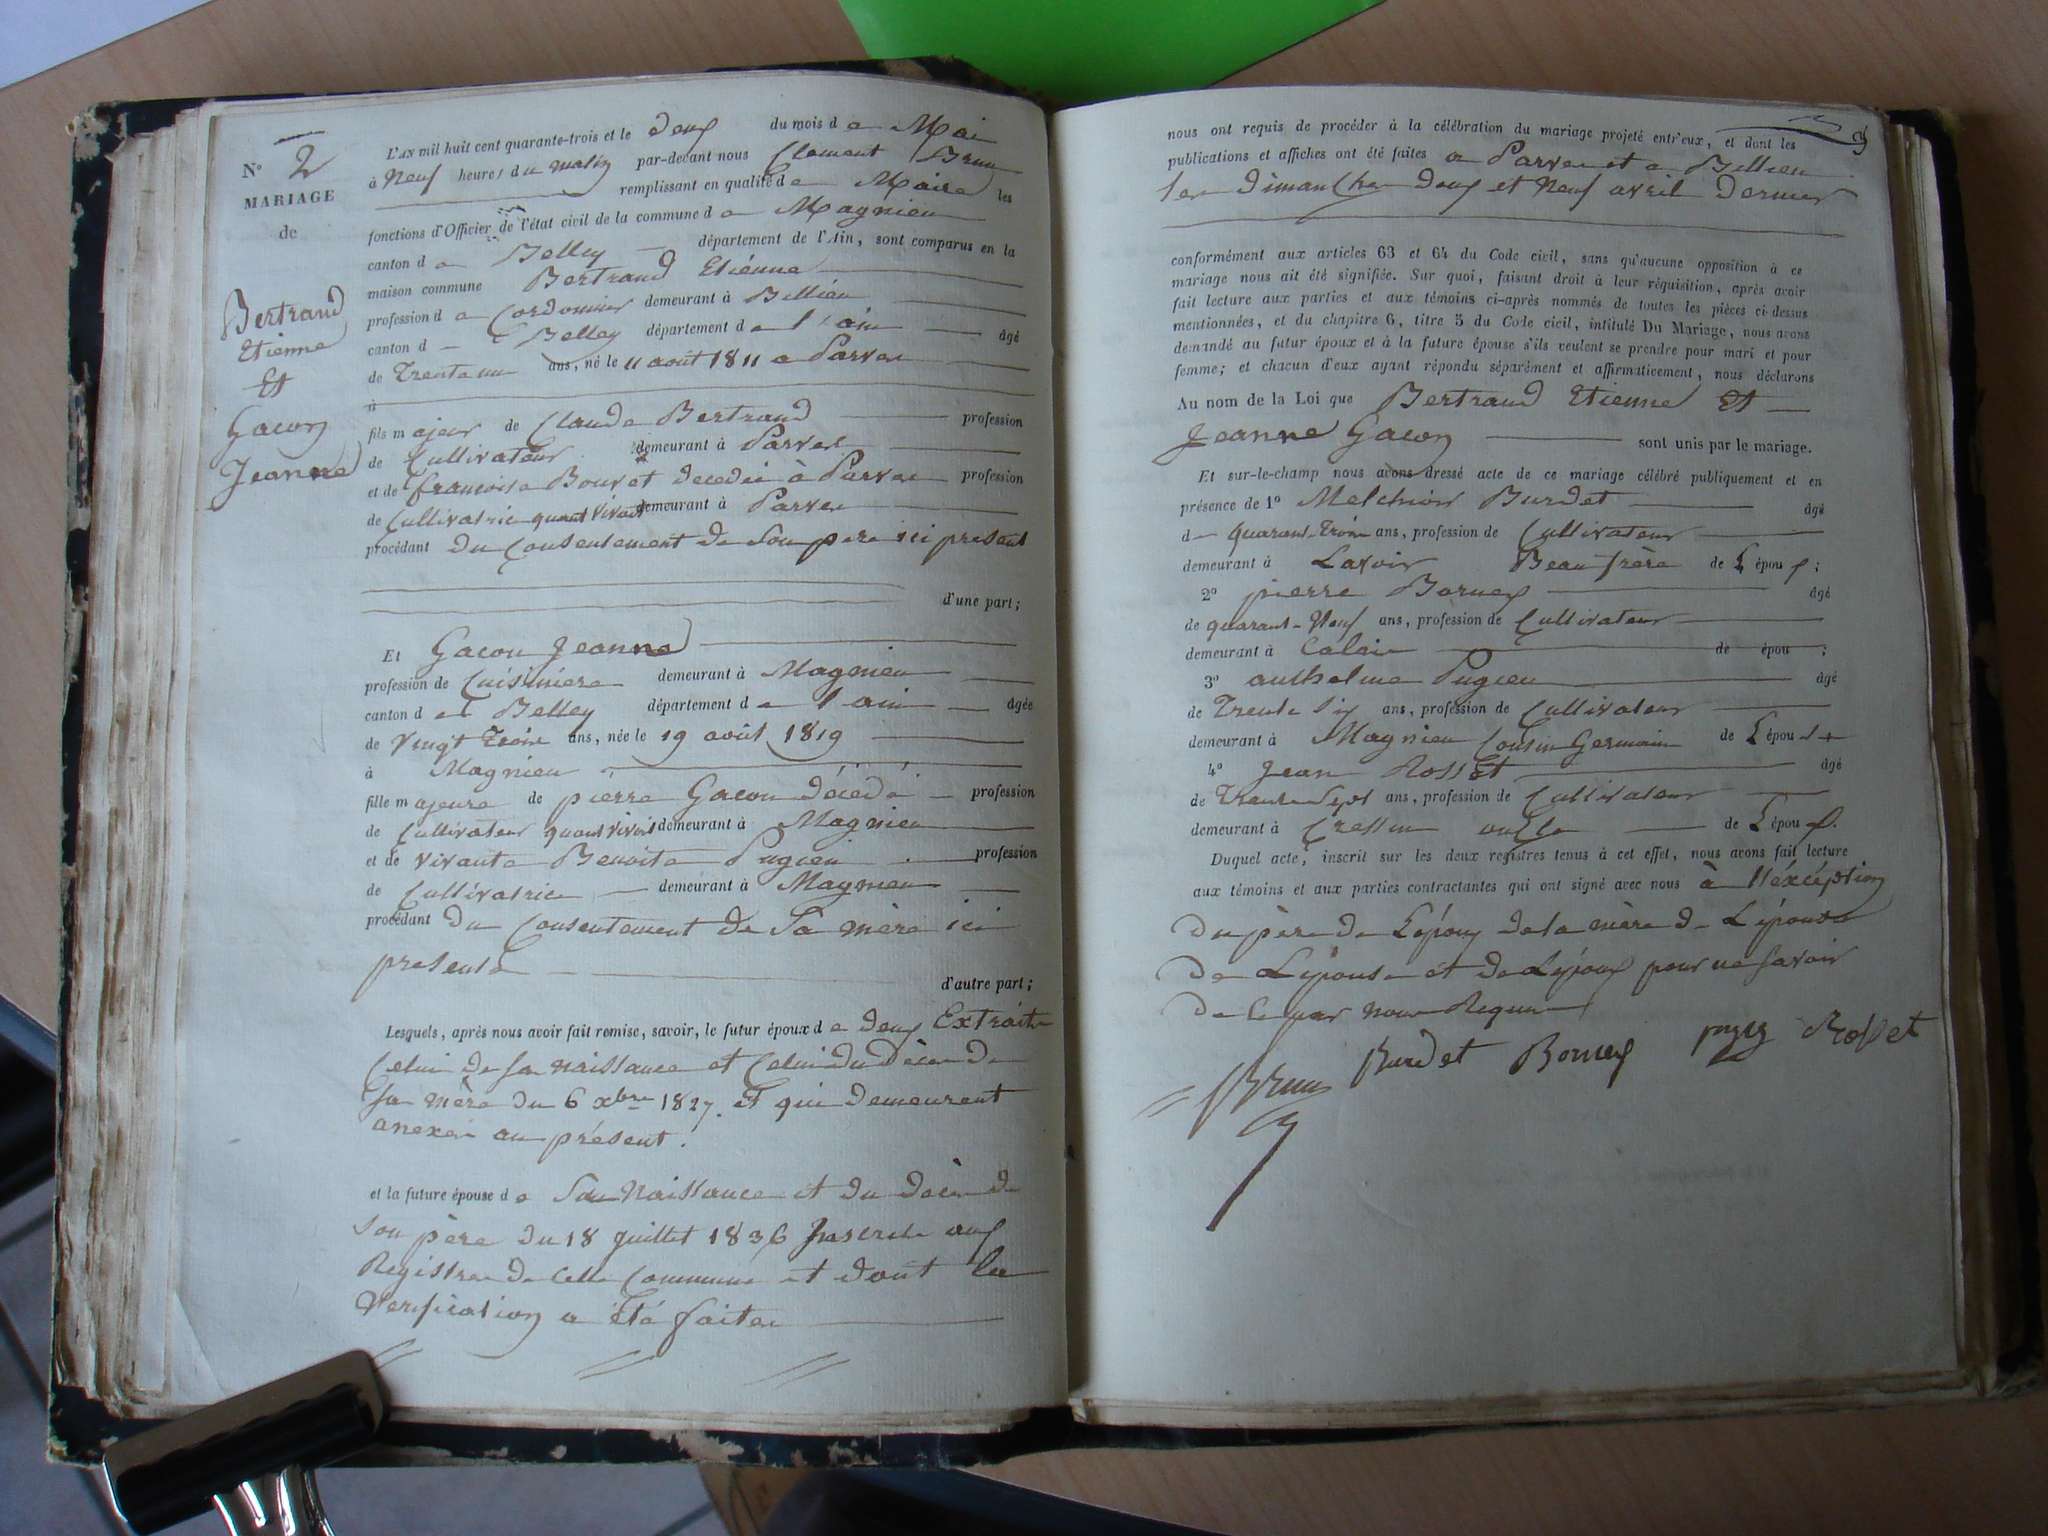 N° 2
MARIAGE
de
Bertrand
Etienne
Et
Gacon
Jeanne
L'AN mil huit cent quarante-trois et le deux du mois de Mai
à Neuf heures du matin par-devant nous Clement Brun
remplissant en qualité de Maire les
fonctions d'Officier de l'état civil de la commune de Magnieu
canton de Belley département de l'Ain, sont comparus en la
maison commune Bertrand Etiénne
profession de Cordonnier demeurant à Billieu
canton d Belley département de l'ain âgé
de Trente un ans, né le 11 août 1811 a Parves
à
fils majeur de Claude Bertrand profession
de Cultivateur demeurant à Parves
et de francoise Bouvet decedée à Parves profession
de Cultivatrice quant vivait demeurant à Parves
procédant du Consentement de Son pere ici present
d'une part;
Et Gacon Jeanne
profession de Cuisiniére demeurant à Magnieu
canton de Belley département de l'ain âgée
de Vingt Trois ans, née le 19 août 1819
à Magnieu
fille majeure de pierre Gacon décédé profession
de Cultivateur quant vivait demeurant à Magnieu
et de vivante Benoite Pugieu profession
de Cultivatrice demeurant à Magnieu
procédant du Consentement de Sa mère ici
presente
d'autre part;
Lesquels, après nous avoir fait remise, savoir, le futur époux de deux Extraits
Celui de sa naissance et Celui du Décès de
sa mère du 6 xbre 1827. et qui demeurent
anexés au présent.
et la future épouse de Sa Naissance et du décès de
Son père du 18 juillet 1836 Inscrits aux
Registres de Cette Commune et dont la
Verification a été faite
nous ont requis de procéder à la célébration du mariage projeté entr'eux, et dont les
publications et affiches ont été faites a Parves et a Billieu
les dimanches deux et Neuf avril Dernier
conformément aux articles 63 et 64 du Code civil, sans qu'aucune opposition à ce
mariage nous ait été signifiée. Sur quoi, faisant droit à leur réquisition, après avoir
fait lecture aux parties et aux témoins ci-après nommés de toutes les pièces ci-dessus
mentionnées, et du chapitre 6, titre 5 du Code civil, intitulé Du Mariage, nous avons
demandé au futur époux et à la future épouse s'ils veulent se prendre pour mari et pour
femme; et chacun d'eux ayant répondu séparément et affirmativement, nous déclarons
Au nom de la Loi que Bertrand Etienne Et
Jeanne Gacon sont unis par le mariage.
Et sur-le-champ nous avons dressé acte de ce mariage célébré publiquement et en
présence de 1° Melchior Burdet âgé
de quarant-Trois ans, profession de Cultivateur
demeurant à Lavoir Beau frère de L'époux;
2° pierre Borney âgé
de quarant-Neuf ans, profession de Cultivateur
demeurant à de épou ;
3° anthelme Pugieu âgé
de Trente Six ans, profession de Cultivateur
demeurant à Magnieu Cousin Germain de L'épouse
4° Jean Rosset âgé
de Trente Sept ans, profession de Cultivateur
demeurant à Cressin de L'époux.
Duquel acte, inscrit sur les deux registres tenus à cet effet, nous avons fait lecture
aux témoins et aux parties contractantes qui ont signé avec nous à l'éxcéption
Du père de L'époux de la mère de L'épouse
De L'épouse et de L'époux pour ne Savoir
De Ce par Nous Requis
Brun Burdet Borney Rosset